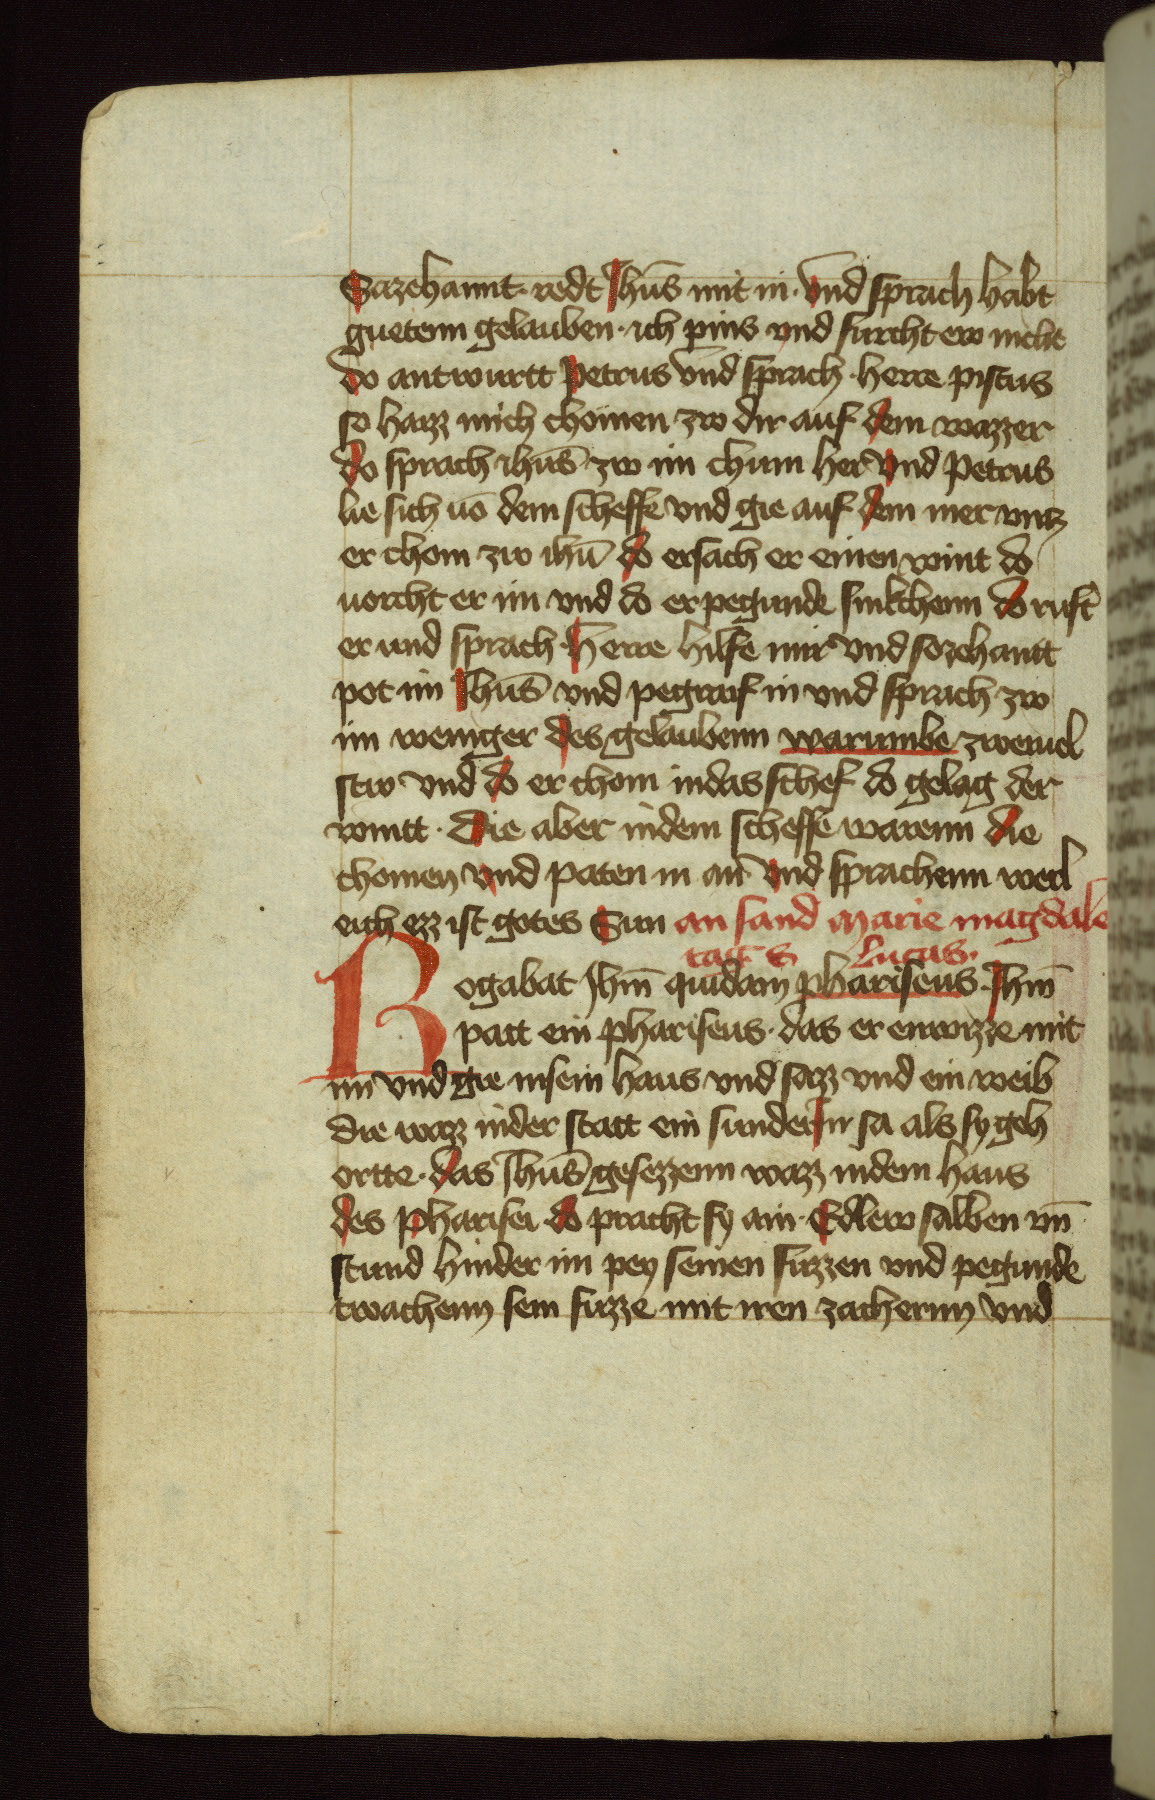 Sazehannt· redt Jhūs mit in· Vnd sprach habt
guetenn gelauben· ich pins vnd furcht ew nicht
do antwurtt Petrus Vnd sprach· herre pistus
so hazz mich chömen zw dir auf dem wazzer
do sprach ihūs zw im chum her Vnd Petrus
lie sich uō dem scheffe vnd gie auf dem mer vntz
er chom zw ihū do ersach er einen wint do
uorcht er im vnd do er pegunde sinkchenn do ruft
er und sprach· herre hilfe mir Vnd sozehantt
pot im Jhūs vnd pegraif in vnd sprach zw
im weniger des gelaubenn warumbe zweiuel
stw Vnd do er chom indas schef do gelag der
wintt· Die aber indem scheffe warenn die
chomen vnd paten in an Vnd sprachenn werl
eich ezz ist gotes Sun an sand Marie magdale
tag S Lucas·
Rogabat Jhm̄ quidam phariseus· Jhm̄
patt ein phariseus· das er enwizze mit
im Vnd gie insein haus vnd sazz vnd ein weib
die wazz inder statt ein sunderJnn sa als sy geh
ortte· das Jhūs gesezzenn wazz indem haus
des Pharisei do pracht sy ain· Edlew salben vn̄
stund hinder im pey seinen fuzzen vnd pegunde
twachenn sein fuzze mit iren zachernn Vnd